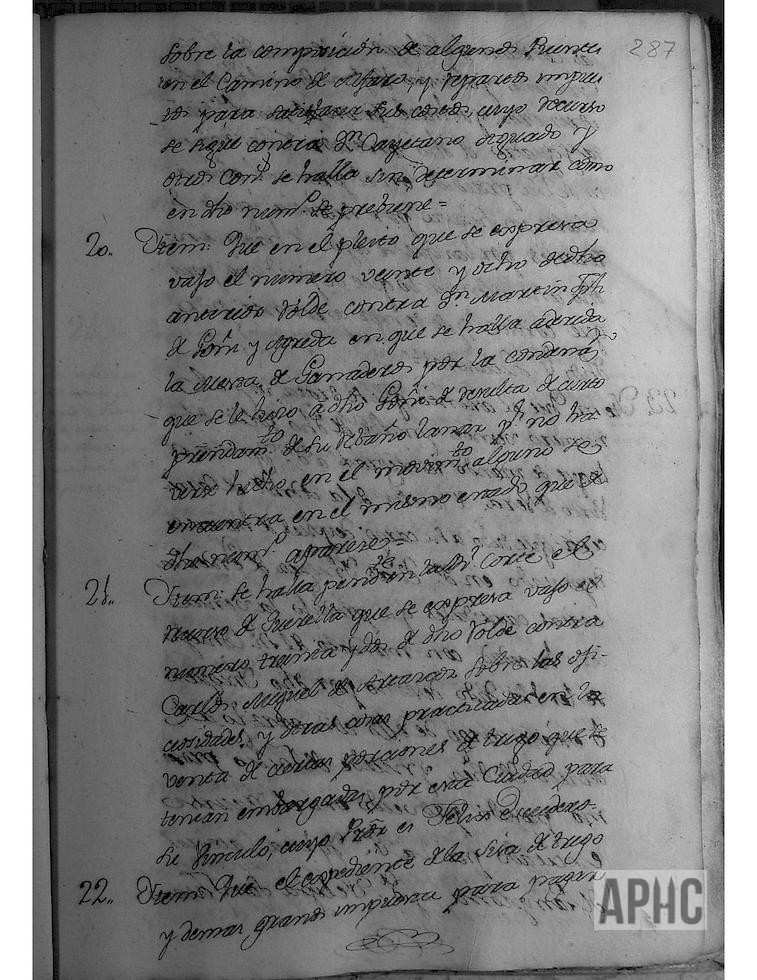 287
sobre la composicion de algunos Puentes
en el Camino de Alfaro, y reparos impues
tos para satisfazer sus costos, cuyo recurso
se sigue contra Dn. Cayetano Aguado y
otros Com. se halla sin determinar como
en dho numº. se prebiene=
20.. Item: Que en el pleito que se expresa
vajo el numero veinte y ocho de dho
anterior Rolde contra Dn. Martin Jph
de Goñi y Agreda en que se halla
la Mesta de Ganaderos por la condena
que se le hizo a dho Goñi de resulta de cierto
prendamto. de su rebaño lanar ph no ha
verse hecho en el movimto. alguno se
encuentra en el mismo estado que de
dho numº. aparece=
21.. Item: se halla pendte en la Rl. Corte el
recurso de Querella que se expresa vajo el
numero treinta y dos de dho Rolde contra
Carlos Miguel de Atarror sobre las ofi-
ciosidades, y otras cosas practicadas en la
venta de ciertas porciones de trigo que se
tenian embargadas por esta Ciudad para
su Vinculo, cuyo Pror. es Felix Escudero.
22.. Item: Que el expediente de la Sisa de trigo
y demas granos impuesta para pagar
APHC